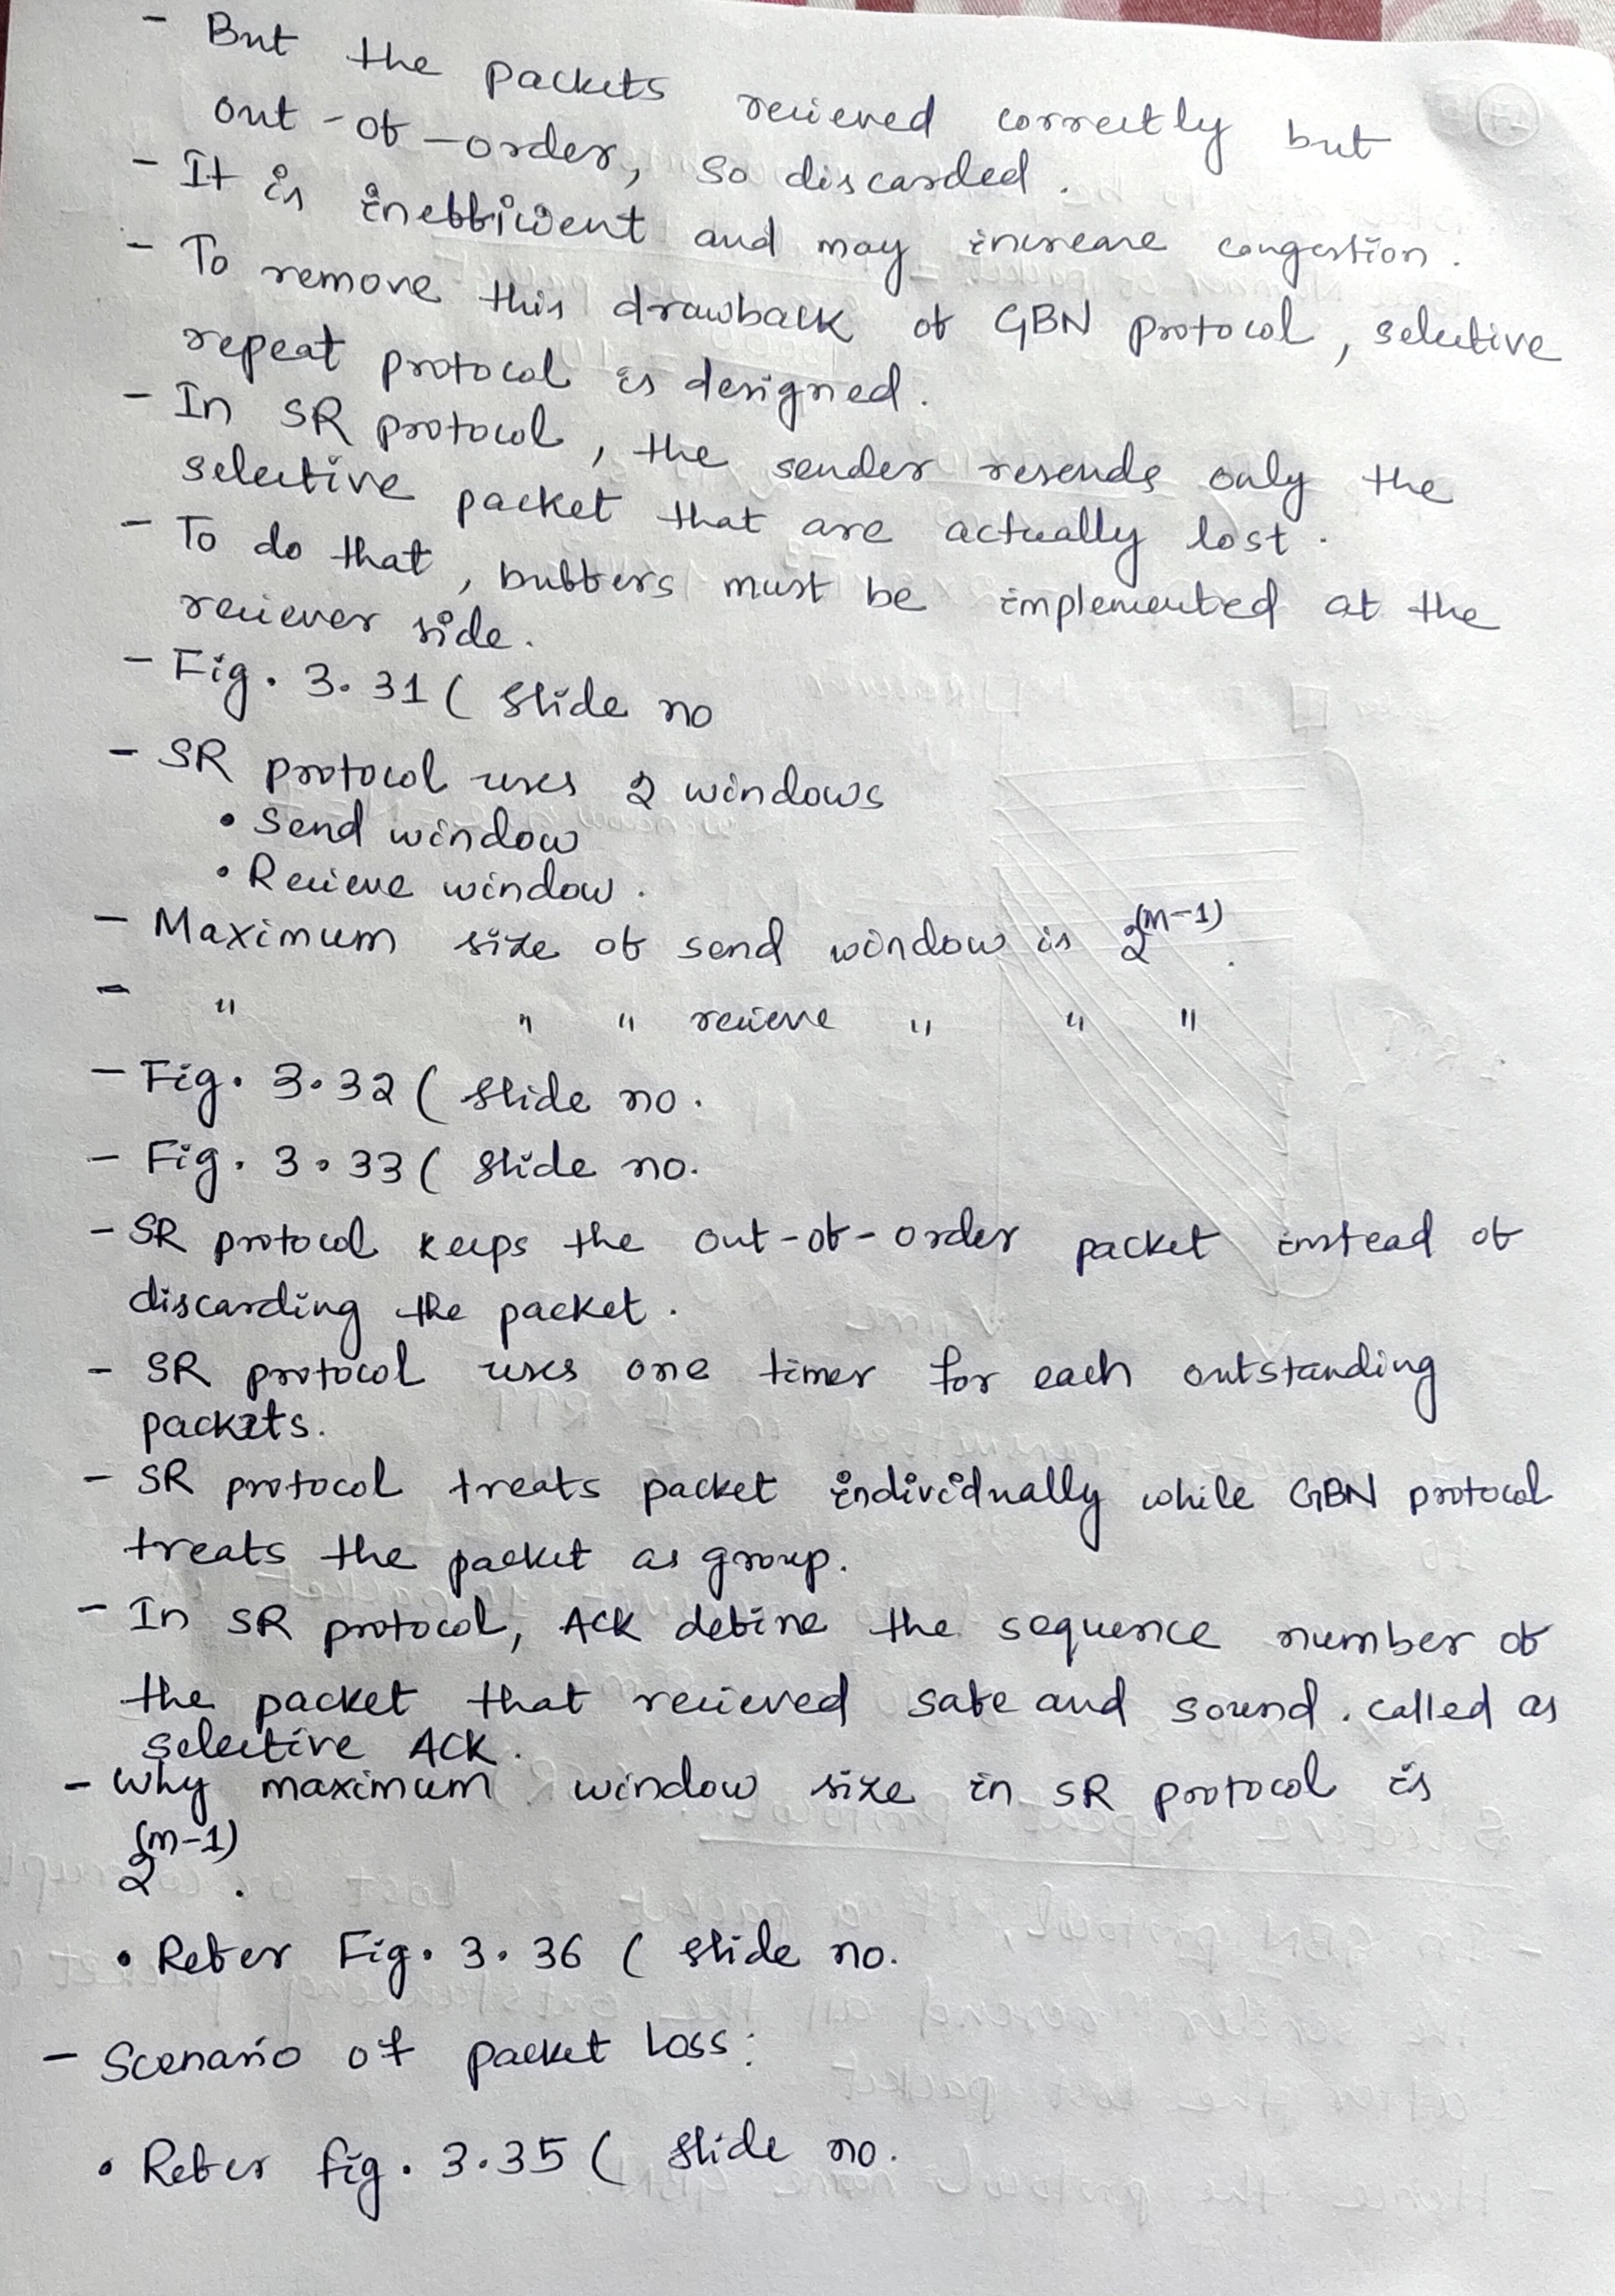 - But the packets recieved correctly but
out-of-order, so discarded.
- It is inefficient and may increase congestion.
- To remove this drawback of GBN protocol, selective
repeat protocol is designed.
- In SR protocol, the sender resends only the
selective packet that are actually lost.
- To do that, buffers must be implemented at the
reciever side.
- Fig. 3.31 ( slide no
- SR protocol uses 2 windows
• Send window
• Recieve window.
- Maximum size of send window is 2^(m-1).
- " " " recieve " " "
- Fig. 3.32 ( slide no.
- Fig. 3.33 ( slide no.
- SR protocol keeps the out-of-order packet instead of
discarding the packet.
- SR protocol uses one timer for each outstanding
packets.
- SR protocol treats packet individually while GBN protocol
treats the packet as group.
- In SR protocol, ACK define the sequence number of
the packet that recieved safe and sound. called as
selective ACK.
- Why maximum window size in SR protocol is
2^(m-1).
• Refer Fig. 3.36 ( slide no.
- Scenario of packet loss:
• Refer fig. 3.35 ( slide no.